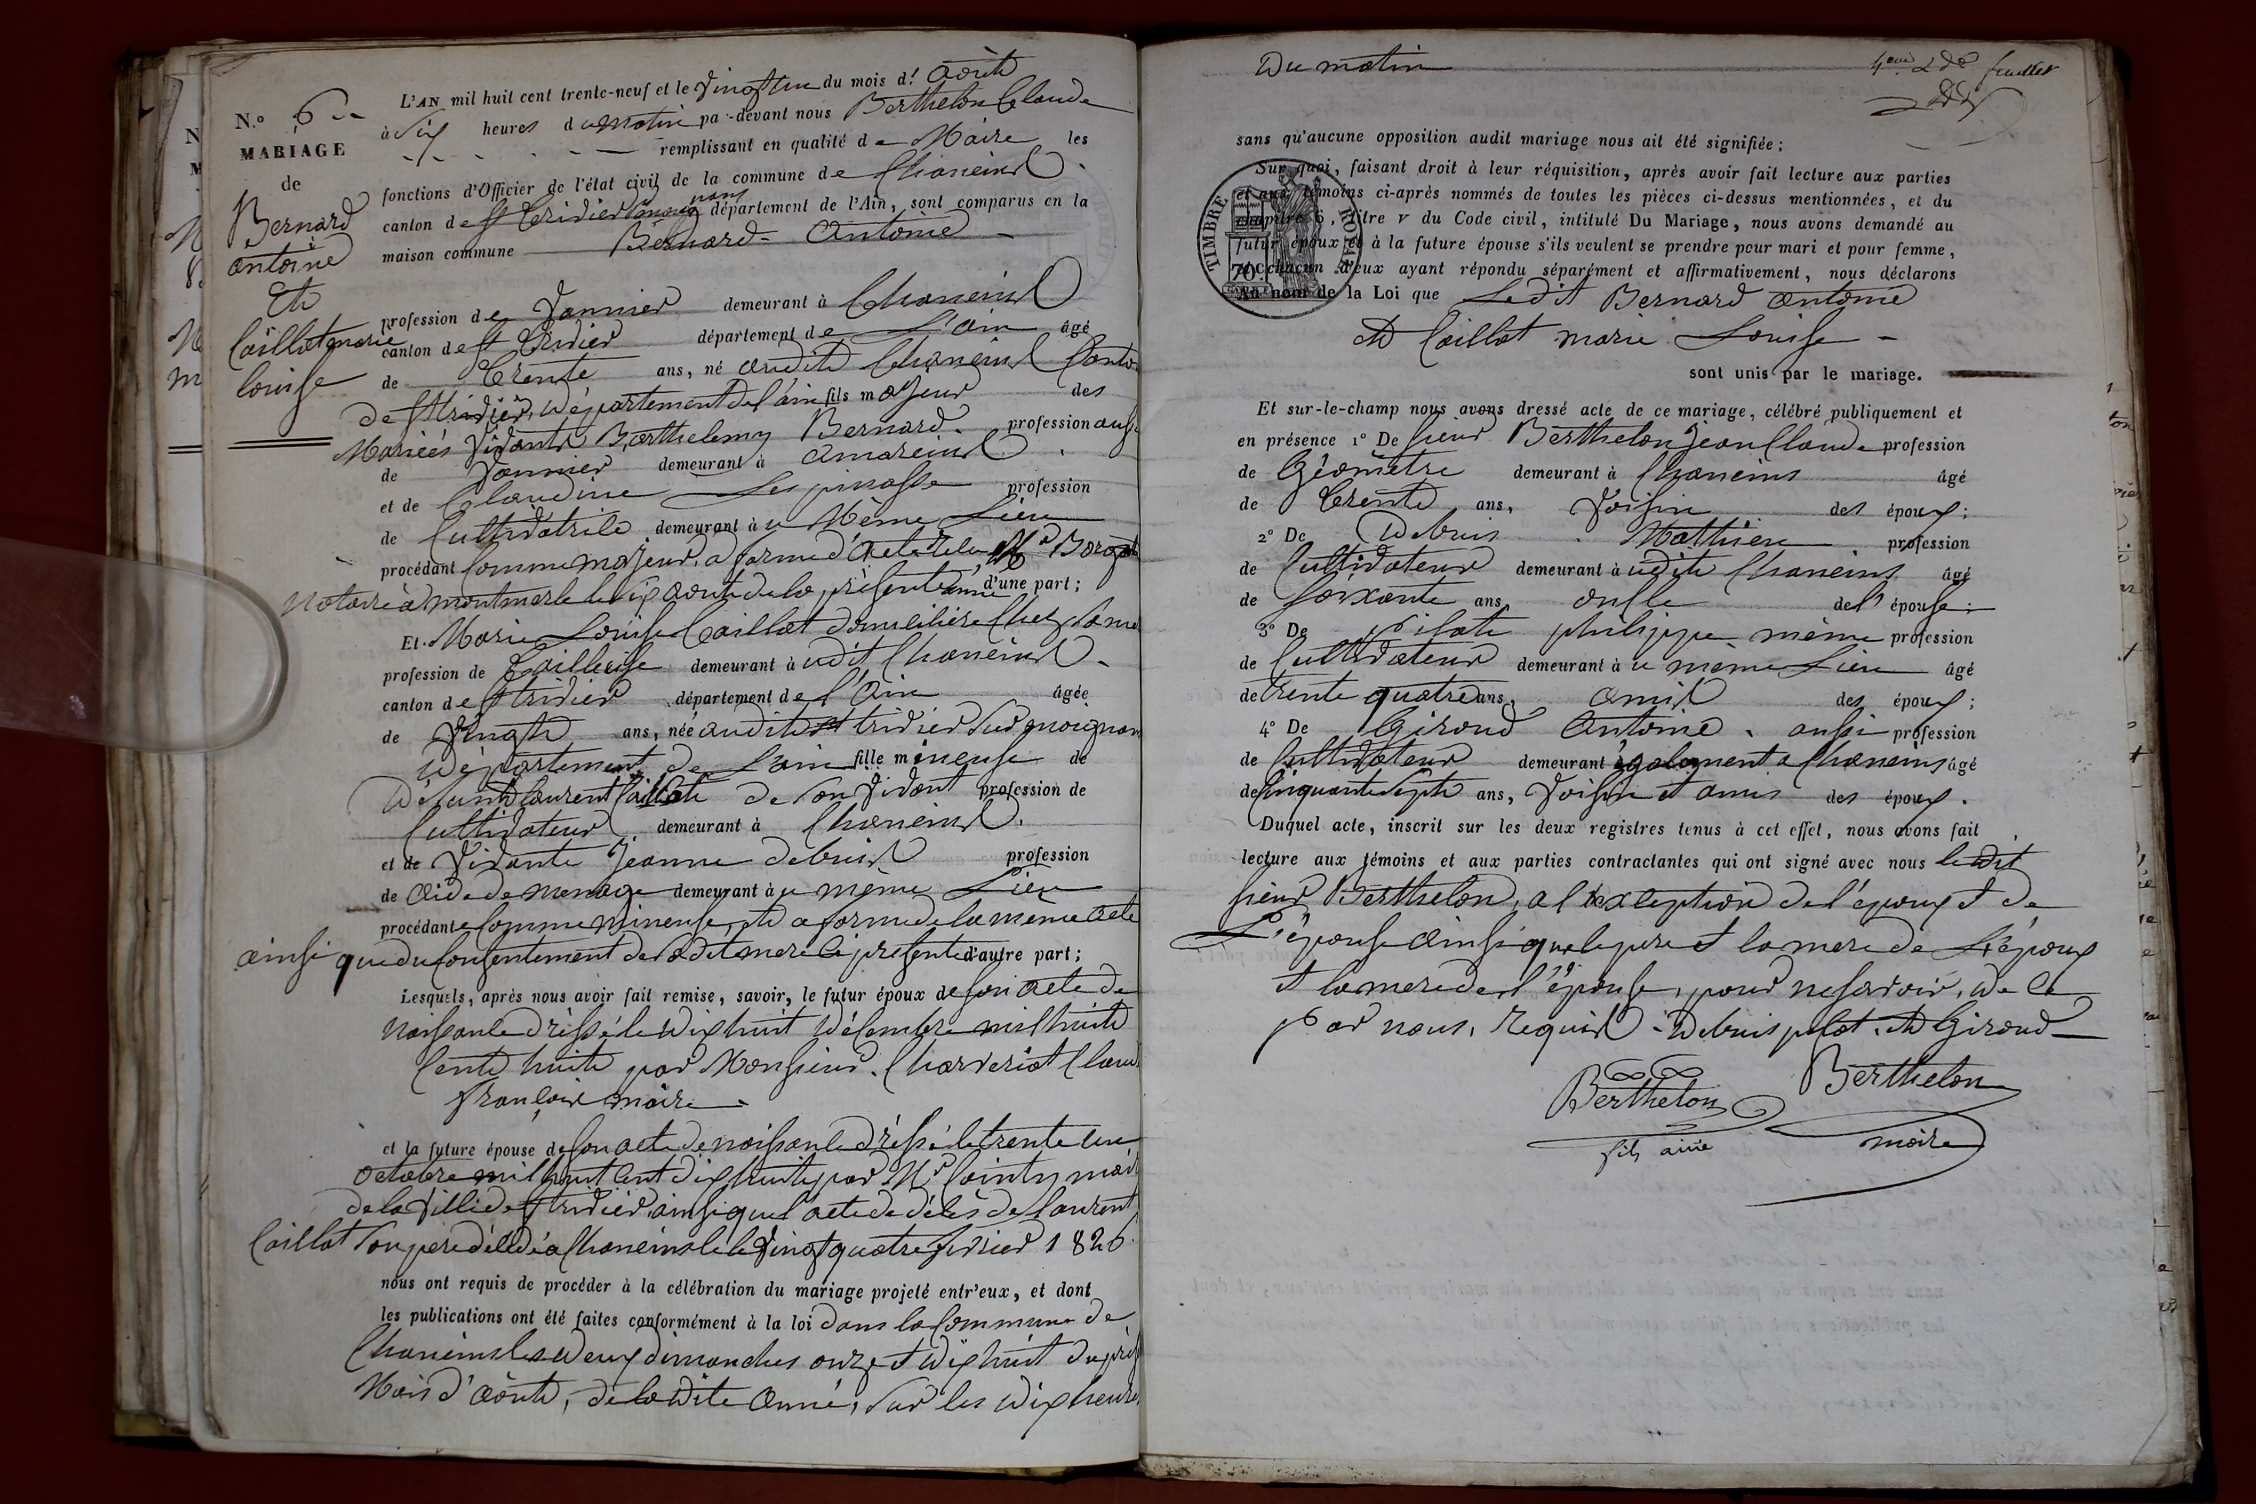 N.o 6
MARIAGE
de
Bernard
antoine
Et
Caillat marie
louise
L'AN mil huit cent trente-neuf et le vingt un du mois d' Aoûte
à Six heures du matin pa-devant nous Berthelon Claude
remplissant en qualité de Maire les
fonctions d'Officier de l'état civil de la commune de Chaneins
canton de St Tridier département de l'Ain, sont comparus en la
maison commune Bernard Antoine
profession de Vannier demeurant à Chaneins
canton de St Tridier département de L'ain âgé
de Trente ans, né audite Chaneins Canton
de St tridier, Département de l'ain fils majeur des
Mariées Vivants Barthelemy Bernard profession aussi
de Vannier demeurant à Amareins
et de Claudine Lespinasse profession
de Cultivatrice demeurant à u Même Lieu
procédant Comme majeur, a forme d'acte
Notaire à montmerle le six aoute de la présente année d'une part;
Et Marie Louise Caillat domiciliére Chez Sa mere
profession de Tailleuse demeurant à udit Chaneins
canton de St tridier département de l'Ain âgée
de Vingte ans, née audite St tridier Sur moignans
Département de L'ain fille mineuse de
Défunt laurent Caillate de Son Vivant profession de
Cultivateur demeurant à Chaneins
et de Vivante Jeanne Debuis profession
de Aide de menage demeurant à u même Lieu
procédante Comme mineuse, et a forme de la même Acte
ainsi que du Consentement de Sadite mere ci présente d'autre part;
Lesquels, après nous avoir fait remise, savoir, le futur époux de son acte de
Naissance dréssé le Dix huit Décembre mil huite
Cente huite par Monsieur Charveriat Claude
françois maire
et la future épouse de son acte de naissance dréssé le trente un
octobre mil huit cent dix huite par Mr Cointy maire
de la Ville de St tridier, ainsi que l'acte de décès de laurent
Caillat Son pere décédé a Chaneins le vingt quatre fevrier 1826
nous ont requis de procéder à la célébration du mariage projeté entr'eux, et dont
les publications ont été faites conformément à la loi dans la Commune de
Chaneins les deux dimanches onze et Dix huit du prést
Mois d'aoûte, de la dite année, Sur les dix heures
Du matin
4eme 2de feuillet
sans qu'aucune opposition audit mariage nous ait été signifiée;
Sur quoi, faisant droit à leur réquisition, après avoir fait lecture aux parties
et aux témoins ci-après nommés de toutes les pièces ci-dessus mentionnées, et du
chapitre 6, titre V du Code civil, intitulé Du Mariage, nous avons demandé au
futur époux et à la future épouse s'ils veulent se prendre pour mari et pour femme,
et chacun d'eux ayant répondu séparément et affirmativement, nous déclarons
Au nom de la Loi que Ledit Bernard antoine
TIMBRE ROYAL
70 C
Et Caillat marie Louise
sont unis par le mariage.
Et sur-le-champ nous avons dressé acte de ce mariage, célébré publiquement et
en présence 1o De sieur Berthelon Jean Claude profession
de Géomètre demeurant à Chaneins âgé
de Trente ans, Voisin des époux;
2o De Debuis Mathieu profession
de Cultivateur demeurant à udite Chaneins âgé
de Soixante ans oncle del' épouse;
3o De pilate philippe même profession
de Cultivateur demeurant à u même Lieu âgé
de trente quatre ans, amis des époux;
4o De Giroud Antoine aussi profession
de Cultivateur demeurant égalament a Chaneins âgé
de Cinquante Septe ans, Voisin et amis des époux.
Duquel acte, inscrit sur les deux registres tenus à cet effet, nous avons fait
lecture aux témoins et aux parties contractantes qui ont signé avec nous ledit
sieur Berthelon, a l'exception de l'époux et de
L'épouse ainsi que le pere et la mere de L'époux
et la mere de l'épouse, pour ne savoir, de ce
par nous, requis. Debuis pilat et Giroud
Berthelon Berthelon
fils ainé maire